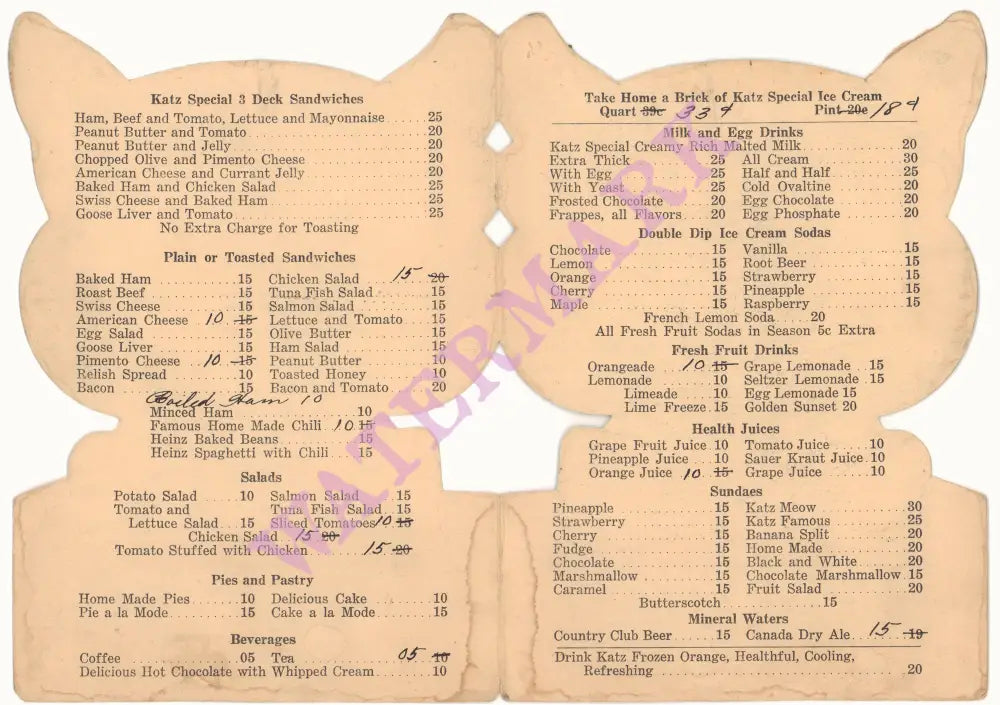 Katz Special 3 Deck Sandwiches
Ham, Beef and Tomato, Lettuce and Mayonnaise 25
Peanut Butter and Tomato 20
Peanut Butter and Jelly 20
Chopped Olive and Pimento Cheese 20
American Cheese and Currant Jelly 20
Baked Ham and Chicken Salad 25
Swiss Cheese and Baked Ham 25
Goose Liver and Tomato 25
No Extra Charge for Toasting
Plain or Toasted Sandwiches
Baked Ham 15 Chicken Salad 15 20
Roast Beef 15 Tuna Fish Salad 15
Swiss Cheese 15 Salmon Salad 15
American Cheese 10 15 Lettuce and Tomato 15
Egg Salad 15 Olive Butter 15
Goose Liver 15 Ham Salad 15
Pimento Cheese 10 15 Peanut Butter 10
Relish Spread 10 Toasted Honey 10
Bacon 15 Bacon and Tomato 20
Boiled Ham 10
Minced Ham 10
Famous Home Made Chili 10 15
Heinz Baked Beans 15
Heinz Spaghetti with Chili 15
Salads
Potato Salad 10 Salmon Salad 15
Tomato and Tuna Fish Salad 15
Lettuce Salad 15 Sliced Tomatoes 10 15
Chicken Salad 15 20
Tomato Stuffed with Chicken 15 20
Pies and Pastry
Home Made Pies 10 Delicious Cake 10
Pie a la Mode 15 Cake a la Mode 15
Beverages
Coffee 05 Tea 05 10
Delicious Hot Chocolate with Whipped Cream 10
Take Home a Brick of Katz Special Ice Cream
Quart 39c 33¢ Pint 20c 18¢
Milk and Egg Drinks
Katz Special Creamy Rich Malted Milk 20
Extra Thick 25 All Cream 30
With Egg 25 Half and Half 25
With Yeast 25 Cold Ovaltine 20
Frosted Chocolate 20 Egg Chocolate 20
Frappes, all Flavors 20 Egg Phosphate 20
Double Dip Ice Cream Sodas
Chocolate 15 Vanilla 15
Lemon 15 Root Beer 15
Orange 15 Strawberry 15
Cherry 15 Pineapple 15
Maple 15 Raspberry 15
French Lemon Soda 20
All Fresh Fruit Sodas in Season 5c Extra
Fresh Fruit Drinks
Orangeade 10 15 Grape Lemonade 15
Lemonade 10 Seltzer Lemonade 15
Limeade 10 Egg Lemonade 15
Lime Freeze 15 Golden Sunset 20
Health Juices
Grape Fruit Juice 10 Tomato Juice 10
Pineapple Juice 10 Sauer Kraut Juice 10
Orange Juice 10 15 Grape Juice 10
Sundaes
Pineapple 15 Katz Meow 30
Strawberry 15 Katz Famous 25
Cherry 15 Banana Split 20
Fudge 15 Home Made 20
Chocolate 15 Black and White 20
Marshmallow 15 Chocolate Marshmallow 15
Caramel 15 Fruit Salad 20
Butterscotch 15
Mineral Waters
Country Club Beer 15 Canada Dry Ale 15 19
Drink Katz Frozen Orange, Healthful, Cooling,
Refreshing 20
WATERMARK